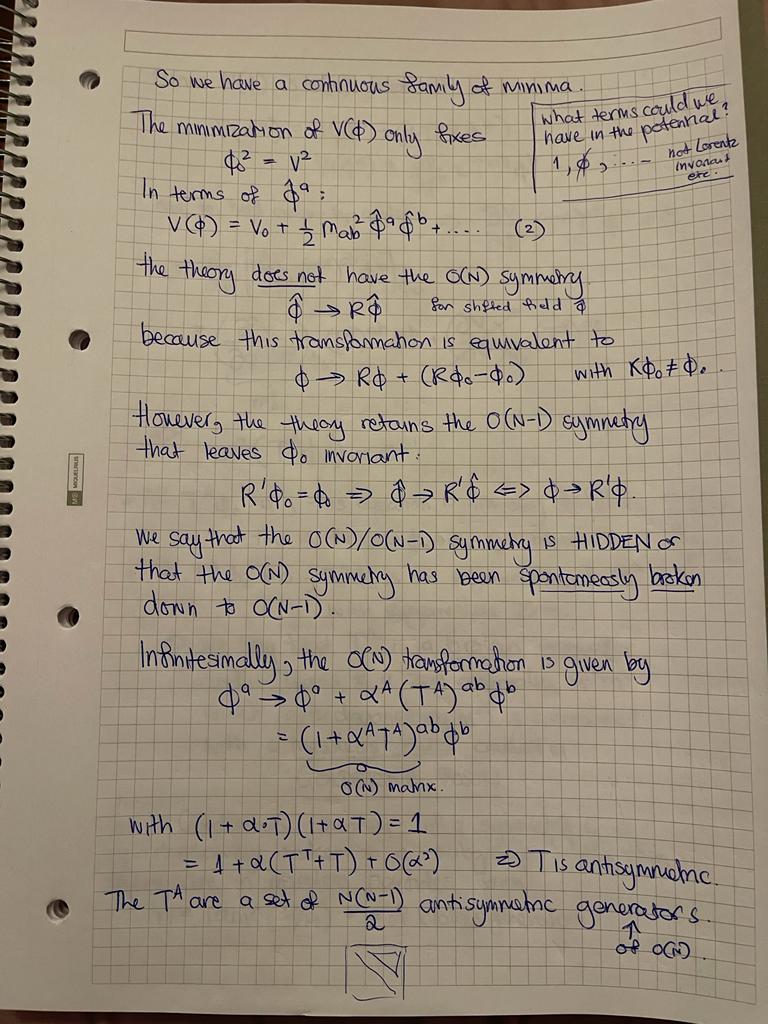 So we have a continuous family of minima.
The minimization of V(ϕ) only fixes
ϕ₀² = v²
what terms could we
have in the potential?
1, ϕ, ..... not Lorentz
invariant
etc.
In terms of ϕ̂ᵃ :
V(ϕ) = V₀ + ½ m_ab² ϕ̂ᵃ ϕ̂ᵇ + .... (2)
the theory does not have the O(N) symmetry
ϕ̂ → Rϕ̂ for shifted field ϕ̂
because this transformation is equivalent to
ϕ → Rϕ + (Rϕ₀-ϕ₀) with Rϕ₀ ≠ ϕ₀.
However, the theory retains the O(N-1) symmetry
that leaves ϕ₀ invariant:
R'ϕ₀ = ϕ₀ ⇒ ϕ̂ → R'ϕ̂ <=> ϕ → R'ϕ.
We say that the O(N)/O(N-1) symmetry is HIDDEN or
that the O(N) symmetry has been spontaneously broken
down to O(N-1).
Infinitesimally, the O(N) transformation is given by
ϕᵃ → ϕᵃ + αᴬ(Tᴬ)ᵃᵇ ϕᵇ
= (1+αᴬTᴬ)ᵃᵇ ϕᵇ
O(N) matrix.
with (1 + α·T)(1+αT) = 1
= 1 + α(Tᵀ+T) + O(α²) ⇒ T is antisymmetric.
The Tᴬ are a set of N(N-1)/2 antisymmetric generators.
↑
of O(N).
MIQUELRIUS